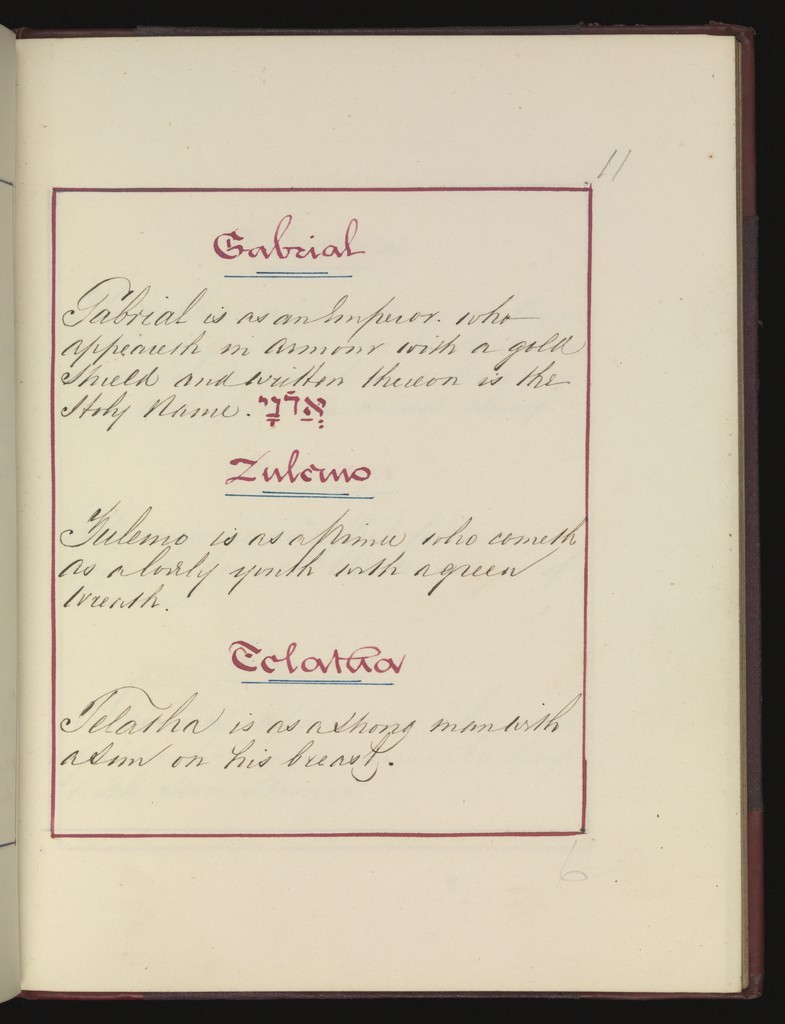 11
Gabrial
Gabrial is as an Emperor. who
appeareth in armour with a gold
shield and written thereon is the
Holy Name. אֲדֹנָי
Zulemo
Zulemo is as a Prince who cometh
as a lovely youth with a green
wreath.
Telatha
Telatha is as a strong man with
a sun on his breast.
6